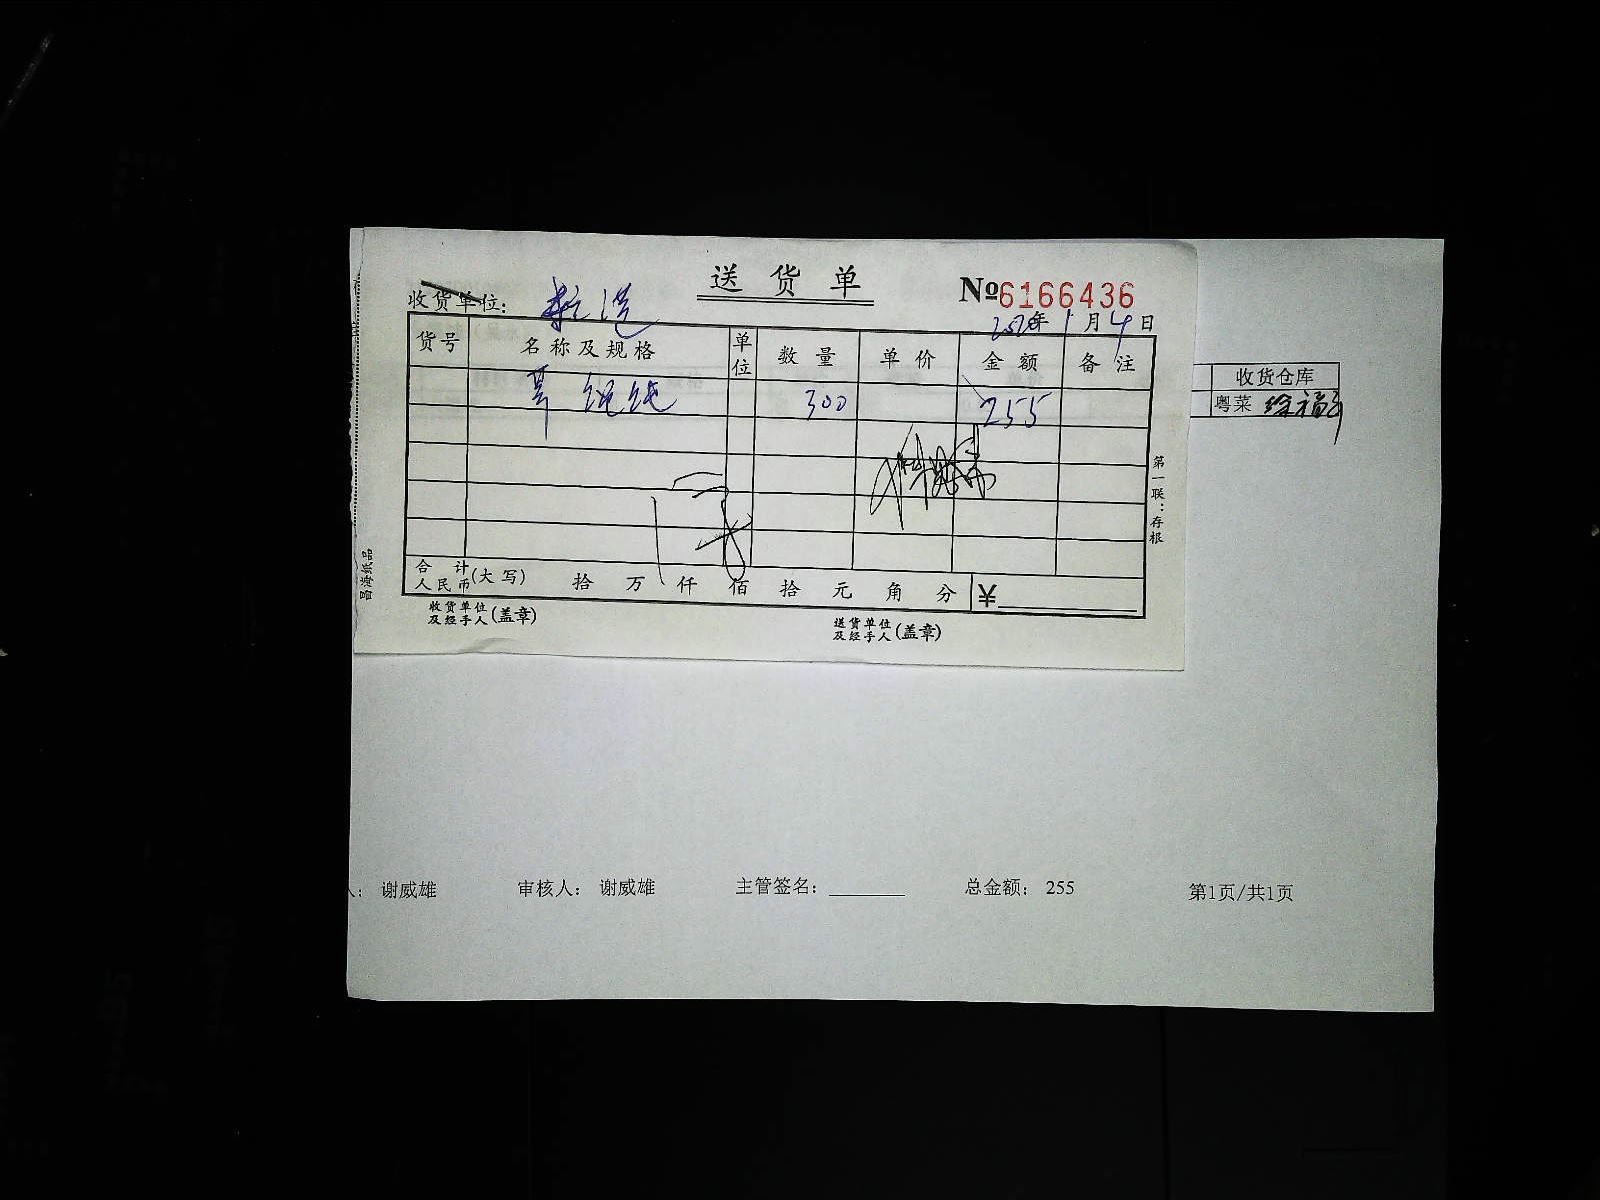 送货单 №6166436
收货单位:
2020年1月4日
货号 名称及规格 单位 数量 单价 金额 备注
300 255
合计人民币(大写) 拾 万 仟 佰 拾 元 角 分 ¥
收货单位及经手人(盖章) 送货单位及经手人(盖章)
第一联:存根
收货仓库
粤菜
谢威雄 审核人: 谢威雄 主管签名: 总金额: 255 第1页/共1页